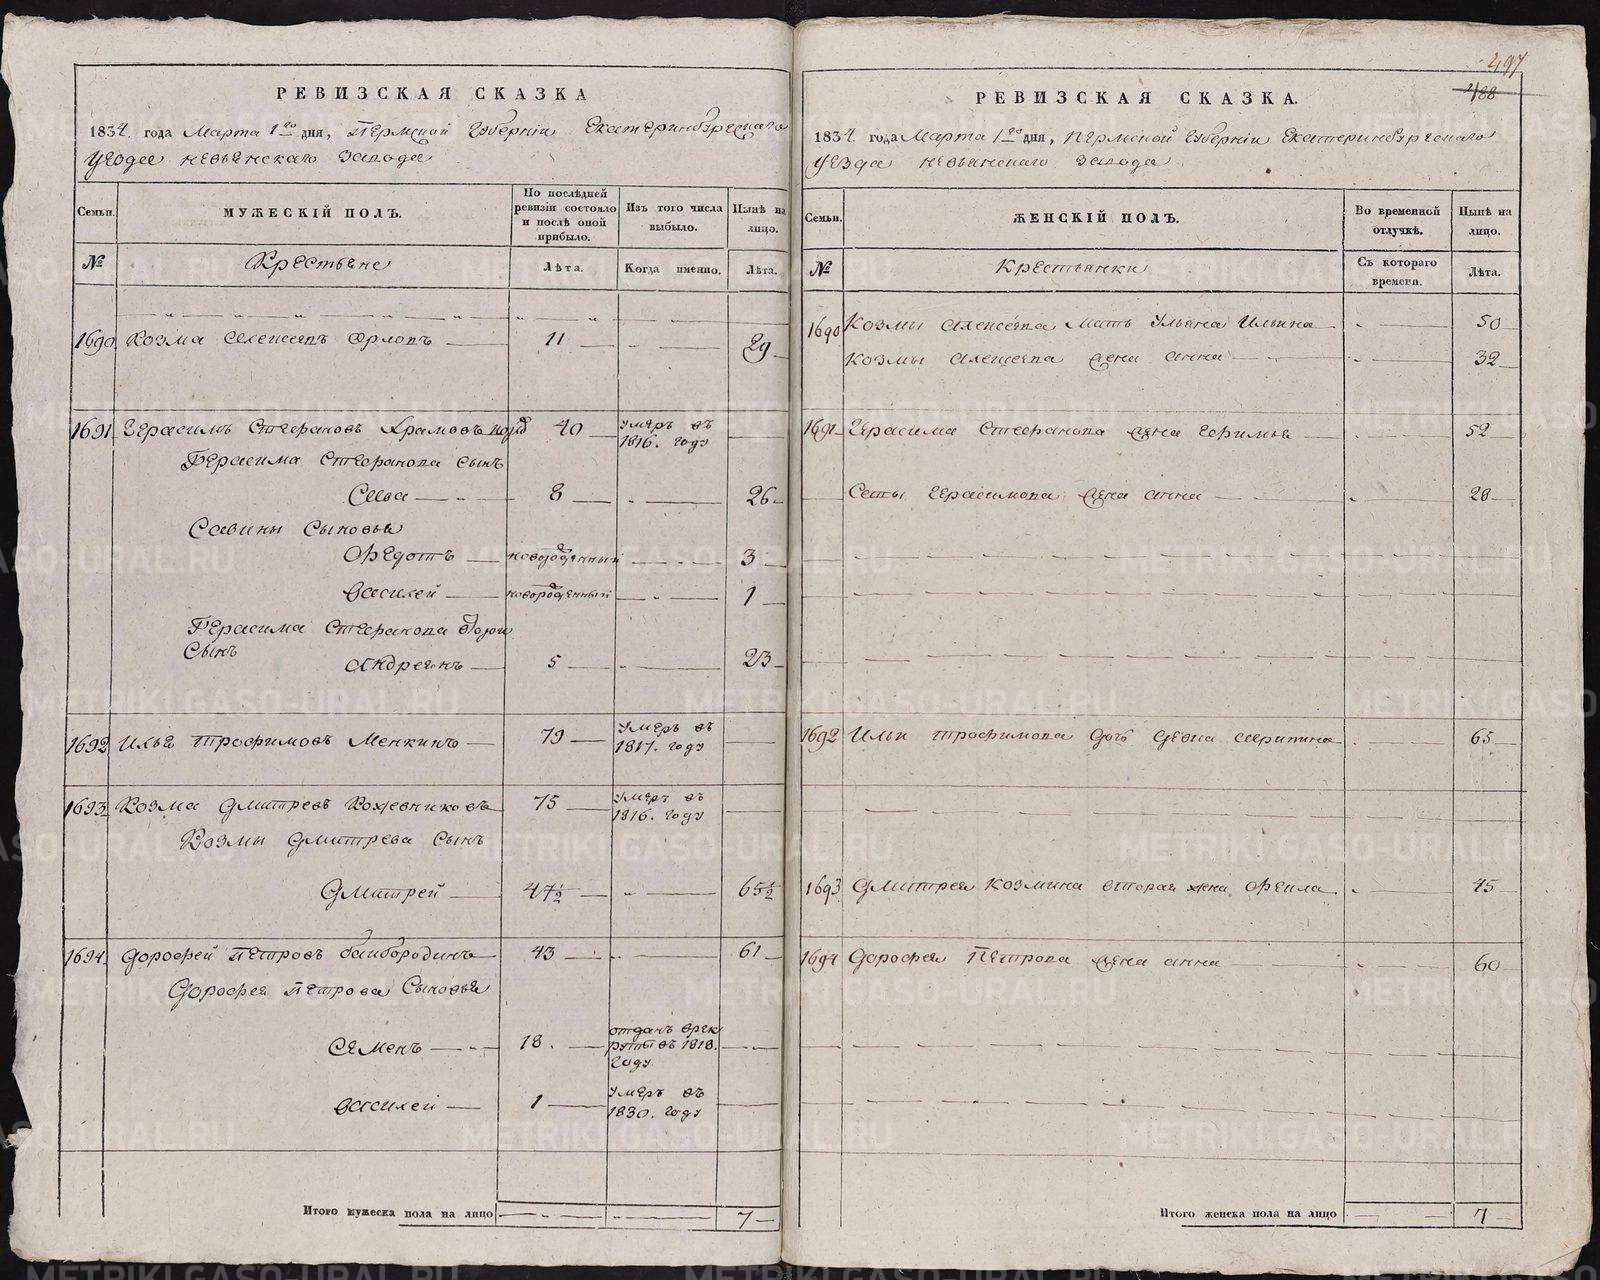 РЕВИЗСКАЯ СКАЗКА
1834. года Марта 1го дня, Пермской Губерніи Екатеринбургскаго
уезда невьянскаго завода
Семьи.
МУЖЕСКІЙ ПОЛЪ.
По послѣдней ревизіи состояло и послѣ оной прибыло.
Изъ того числа выбыло.
Нынѣ на лицо.
№
Крестьяне
Лѣта.
Когда именно.
Лѣта.
1690 Козма Алексеевъ Орловъ 11 29
1691 Герасимъ Стефановъ 40 умеръ въ 1816. году
Герасима Стефанова сынъ
Сава 8 26
Савины Сыновья
Федотъ новорожденный 3
Василей новорожденный 1
Герасима Стефанова второй
Сынъ
Андреянъ 5 23
1692 Илья Трофимовъ Менкинъ 79 Умеръ въ 1817. году
1693 Козма Дмитревъ Кожевниковъ 75 умеръ въ 1816. году
Козмы Дмитрева Сынъ
Дмитрей 47½ 65½
1694 Дорофей Петровъ Баибородинъ 43 61
Дорофея Петрова Сыновья
Семенъ 18. отданъ в рекруты въ 1818. году
Василей 1 Умеръ въ 1830. году
Итого мужеска пола на лицо 7
497
488
РЕВИЗСКАЯ СКАЗКА.
1834. года Марта 1го дня, Пермской Губерніи Екатеринбургскаго
уезда невьянскаго завода
Семьи.
ЖЕНСКІЙ ПОЛЪ.
Во временной отлучкѣ.
Нынѣ на лицо.
№
Крестьянки
Съ котораго времени.
Лѣта.
1690 Козмы Алексеева Мать Ульяна Ильина 50
Козмы Алексеева жена Анна 32
1691 Герасима Стефанова жена Ефимья 52
Савы Герасимова жена Анна 28
1692 Ильи Трофимова дочь девка 65
1693 Дмитрея Козмина вторая жена Фекла 45
1694 Дорофея Петрова жена Анна 60
Итого женска пола на лицо 7
METRIKI.GASO-URAL.RU